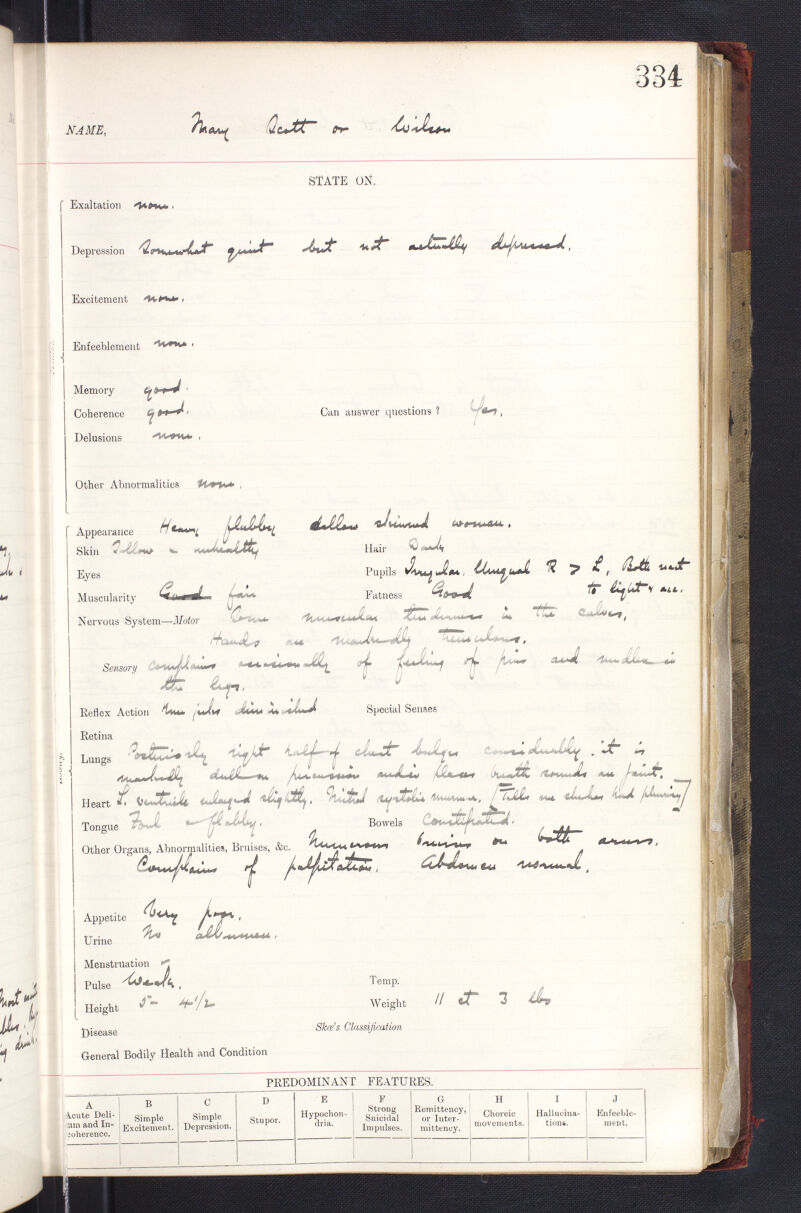 334
NAME, Mary Scott or Wilson
STATE ON.
Exaltation none.
Depression Somewhat quiet but not actually depressed.
Excitement none.
Enfeeblement none.
Memory good.
Coherence good. Can answer questions? Yes.
Delusions none.
Other Abnormalities none.
Appearance Heavy flabby sallow skinned woman.
Skin Sallow & unhealthy Hair Dark
Eyes Pupils Irregular. Unequal R > L, Both react
to light & acc.
Muscularity Good fair Fatness Good
Nervous System—Motor Some muscular tenderness in the calves,
Hands are markedly tremulous.
Sensory Complains occasionally of feeling of pins and needles in
the legs.
Reflex Action Knee jerks diminished Special Senses
Retina
Lungs Posteriorly right half of chest bulges considerably. it is
markedly dull on percussion and in places breath sounds are faint.
Heart L. ventricle enlarged slightly. Mitral systolic murmur. [Tells me she has had pleurisy]
Tongue Foul & flabby. Bowels Constipated.
Other Organs, Abnormalities, Bruises, &c. Numerous bruises on both arms.
Complains of palpitation. Abdomen normal.
Appetite Very poor.
Urine No albumen.
Menstruation
Pulse Weak. Temp.
Height 5- 4 1/2 Weight 11 st 3 lbs
Disease Skae's Classification
General Bodily Health and Condition
PREDOMINANT FEATURES.
A B C D E F G H I J
Acute Deli-
um and In-
coherence.
Simple
Excitement.
Simple
Depression.
Stupor.
Hypochon-
dria.
Strong
Suicidal
Impulses.
Remittency,
or Inter-
mittency.
Choreic
movements.
Hallucina-
tions.
Enfeeble-
ment.